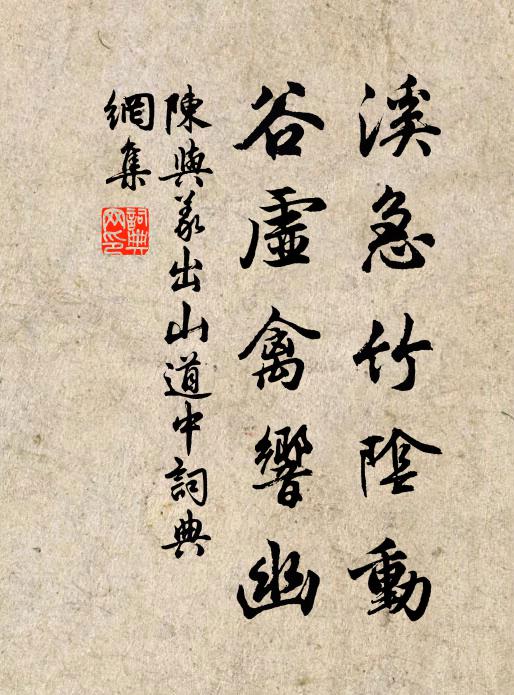 溪急竹陰動
谷虛禽響幽
陳與義出山道中詞典
網集
詞典網印